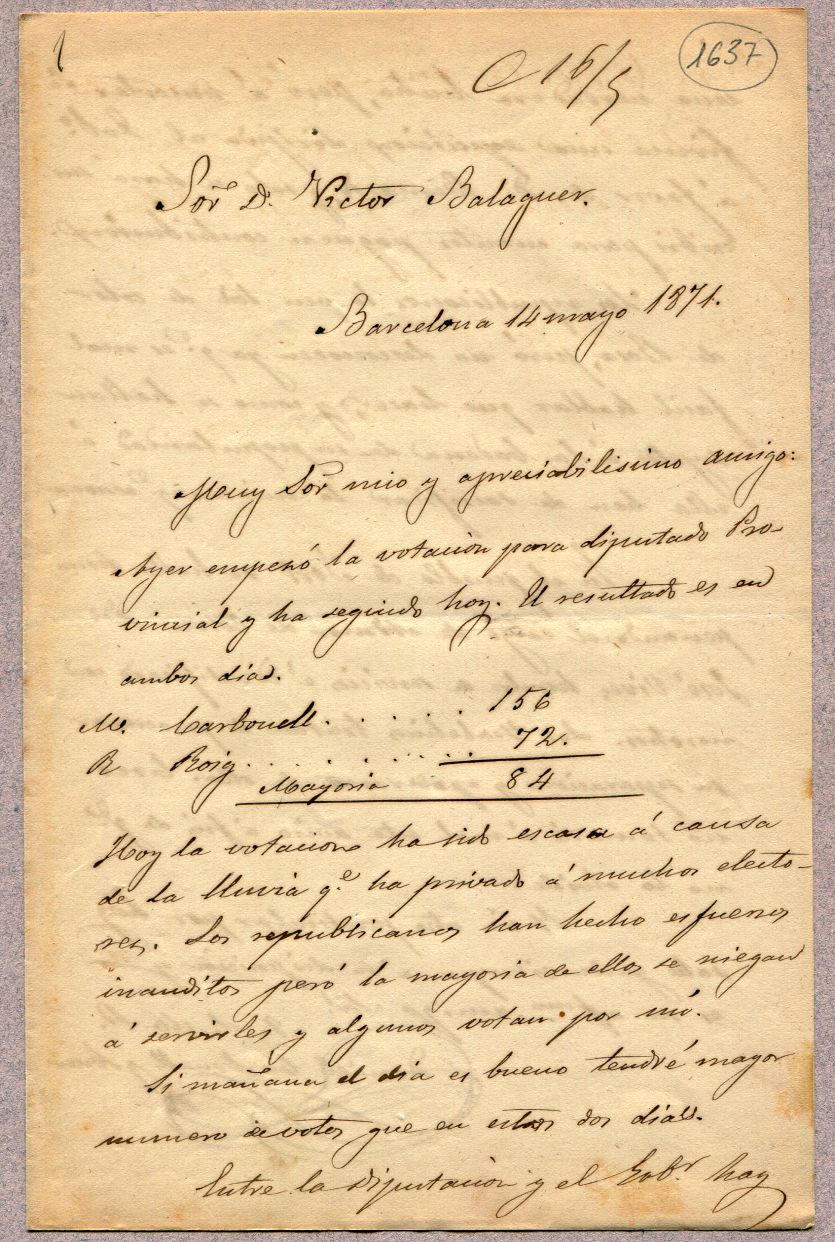 1
C 16/5
1637
Sor. D. Victor Balaguer.
Barcelona 14 mayo 1871.
Muy Sor mio y apreciabilisimo amigo:
Ayer empezó la votacion para diputado Pro-
vincial y ha seguido hoy. El resultado es en
ambos dias.
M. Carbonell. . . . . . 156
R Roig. . . . . . . . . 72.
Mayoria 84
Hoy la votacion ha sido escasa á causa
de la lluvia q.e ha privado á muchos electo-
res. Los republicanos han hecho esfuerzos
inauditos peró la mayoria de ellos se niegan
á servirles y algunos votan por mi.
Si mañana el dia es bueno tendré mayor
numero de votos que en estos dos dias.
Entre la Diputacion y el Gobr. hay